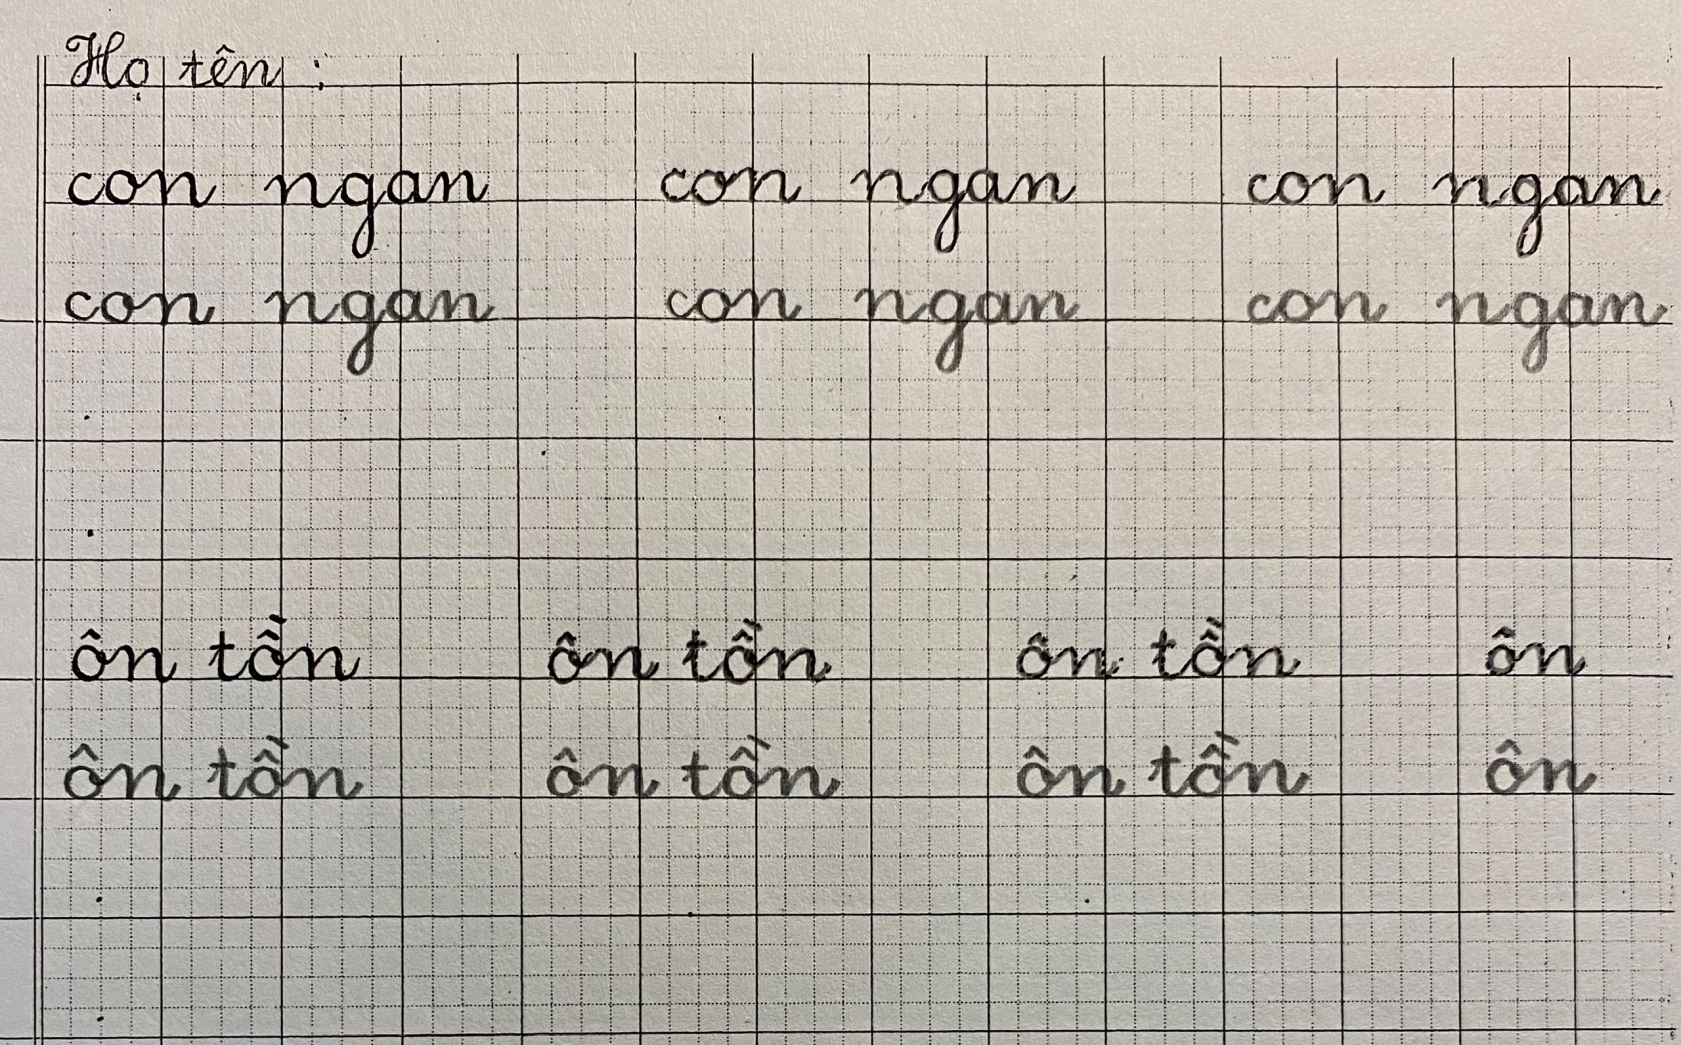 Họ tên :
con ngan con ngan con ngan
con ngan con ngan con ngan
ôn tồn ôn tồn ôn tồn ôn
ôn tồn ôn tồn ôn tồn ôn